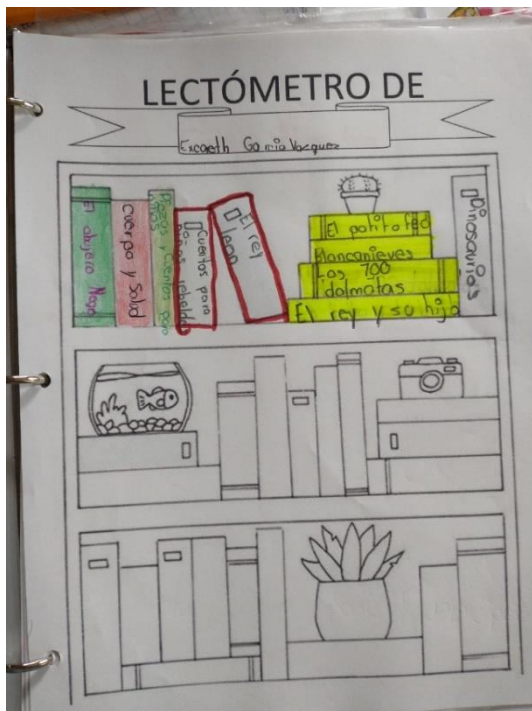 LECTÓMETRO DE
Escaeth Garcia Vazquez
El agujero Negro
Cuerpo y Salud
y Cuentos para
Cuentos para
niñas rebeldes
El rey
leon
El patito feo
Blancanieves
Los 100
dalmatas
El rey y su hijo
Dinosaurios